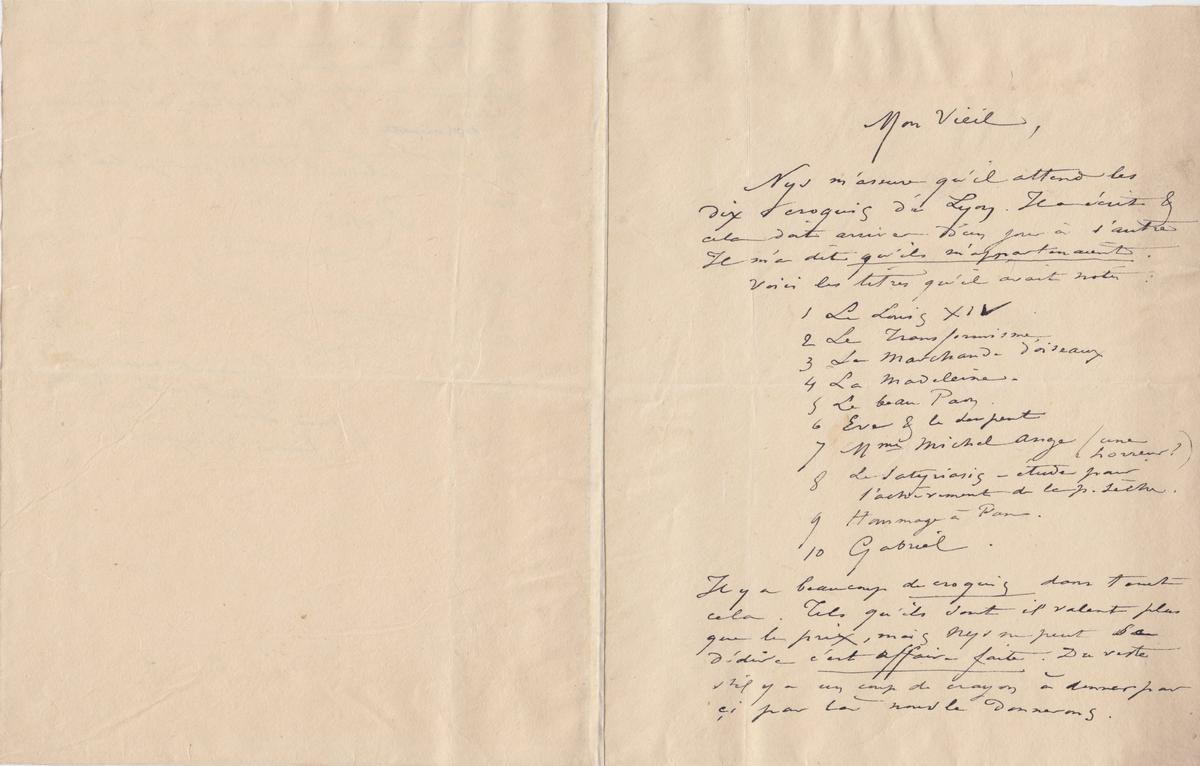 Mon Vieil,
Nys m'assure qu'il attend les
dix croquis de Lyon. Il a écrit &
cela doit arriver d'un jour à l'autre
Il m'a dit qu'ils m'appartenaient.
Voici les titres qu'il avait notés :
1 Le Louis XIV
2 Le Transformisme
3 La Marchande d'oiseaux
4 La Madeleine.
5 Le beau Paon.
6 Eve & le serpent
7 Mme Michel Ange (une
horreur!)
8 Le Satyriasis - étude pour
l'achèvement de la p. sèche.
9 Hommage à Pan.
10 Gabriel.
Il y a beaucoup de croquis dans tout
cela. Tels qu'ils sont il valent plus
que le prix, mais Nys ne peut se
dédire c'est affaire faite. Du reste
s'il y a un coup de crayon à donner par
çi par là nous le donnerons.